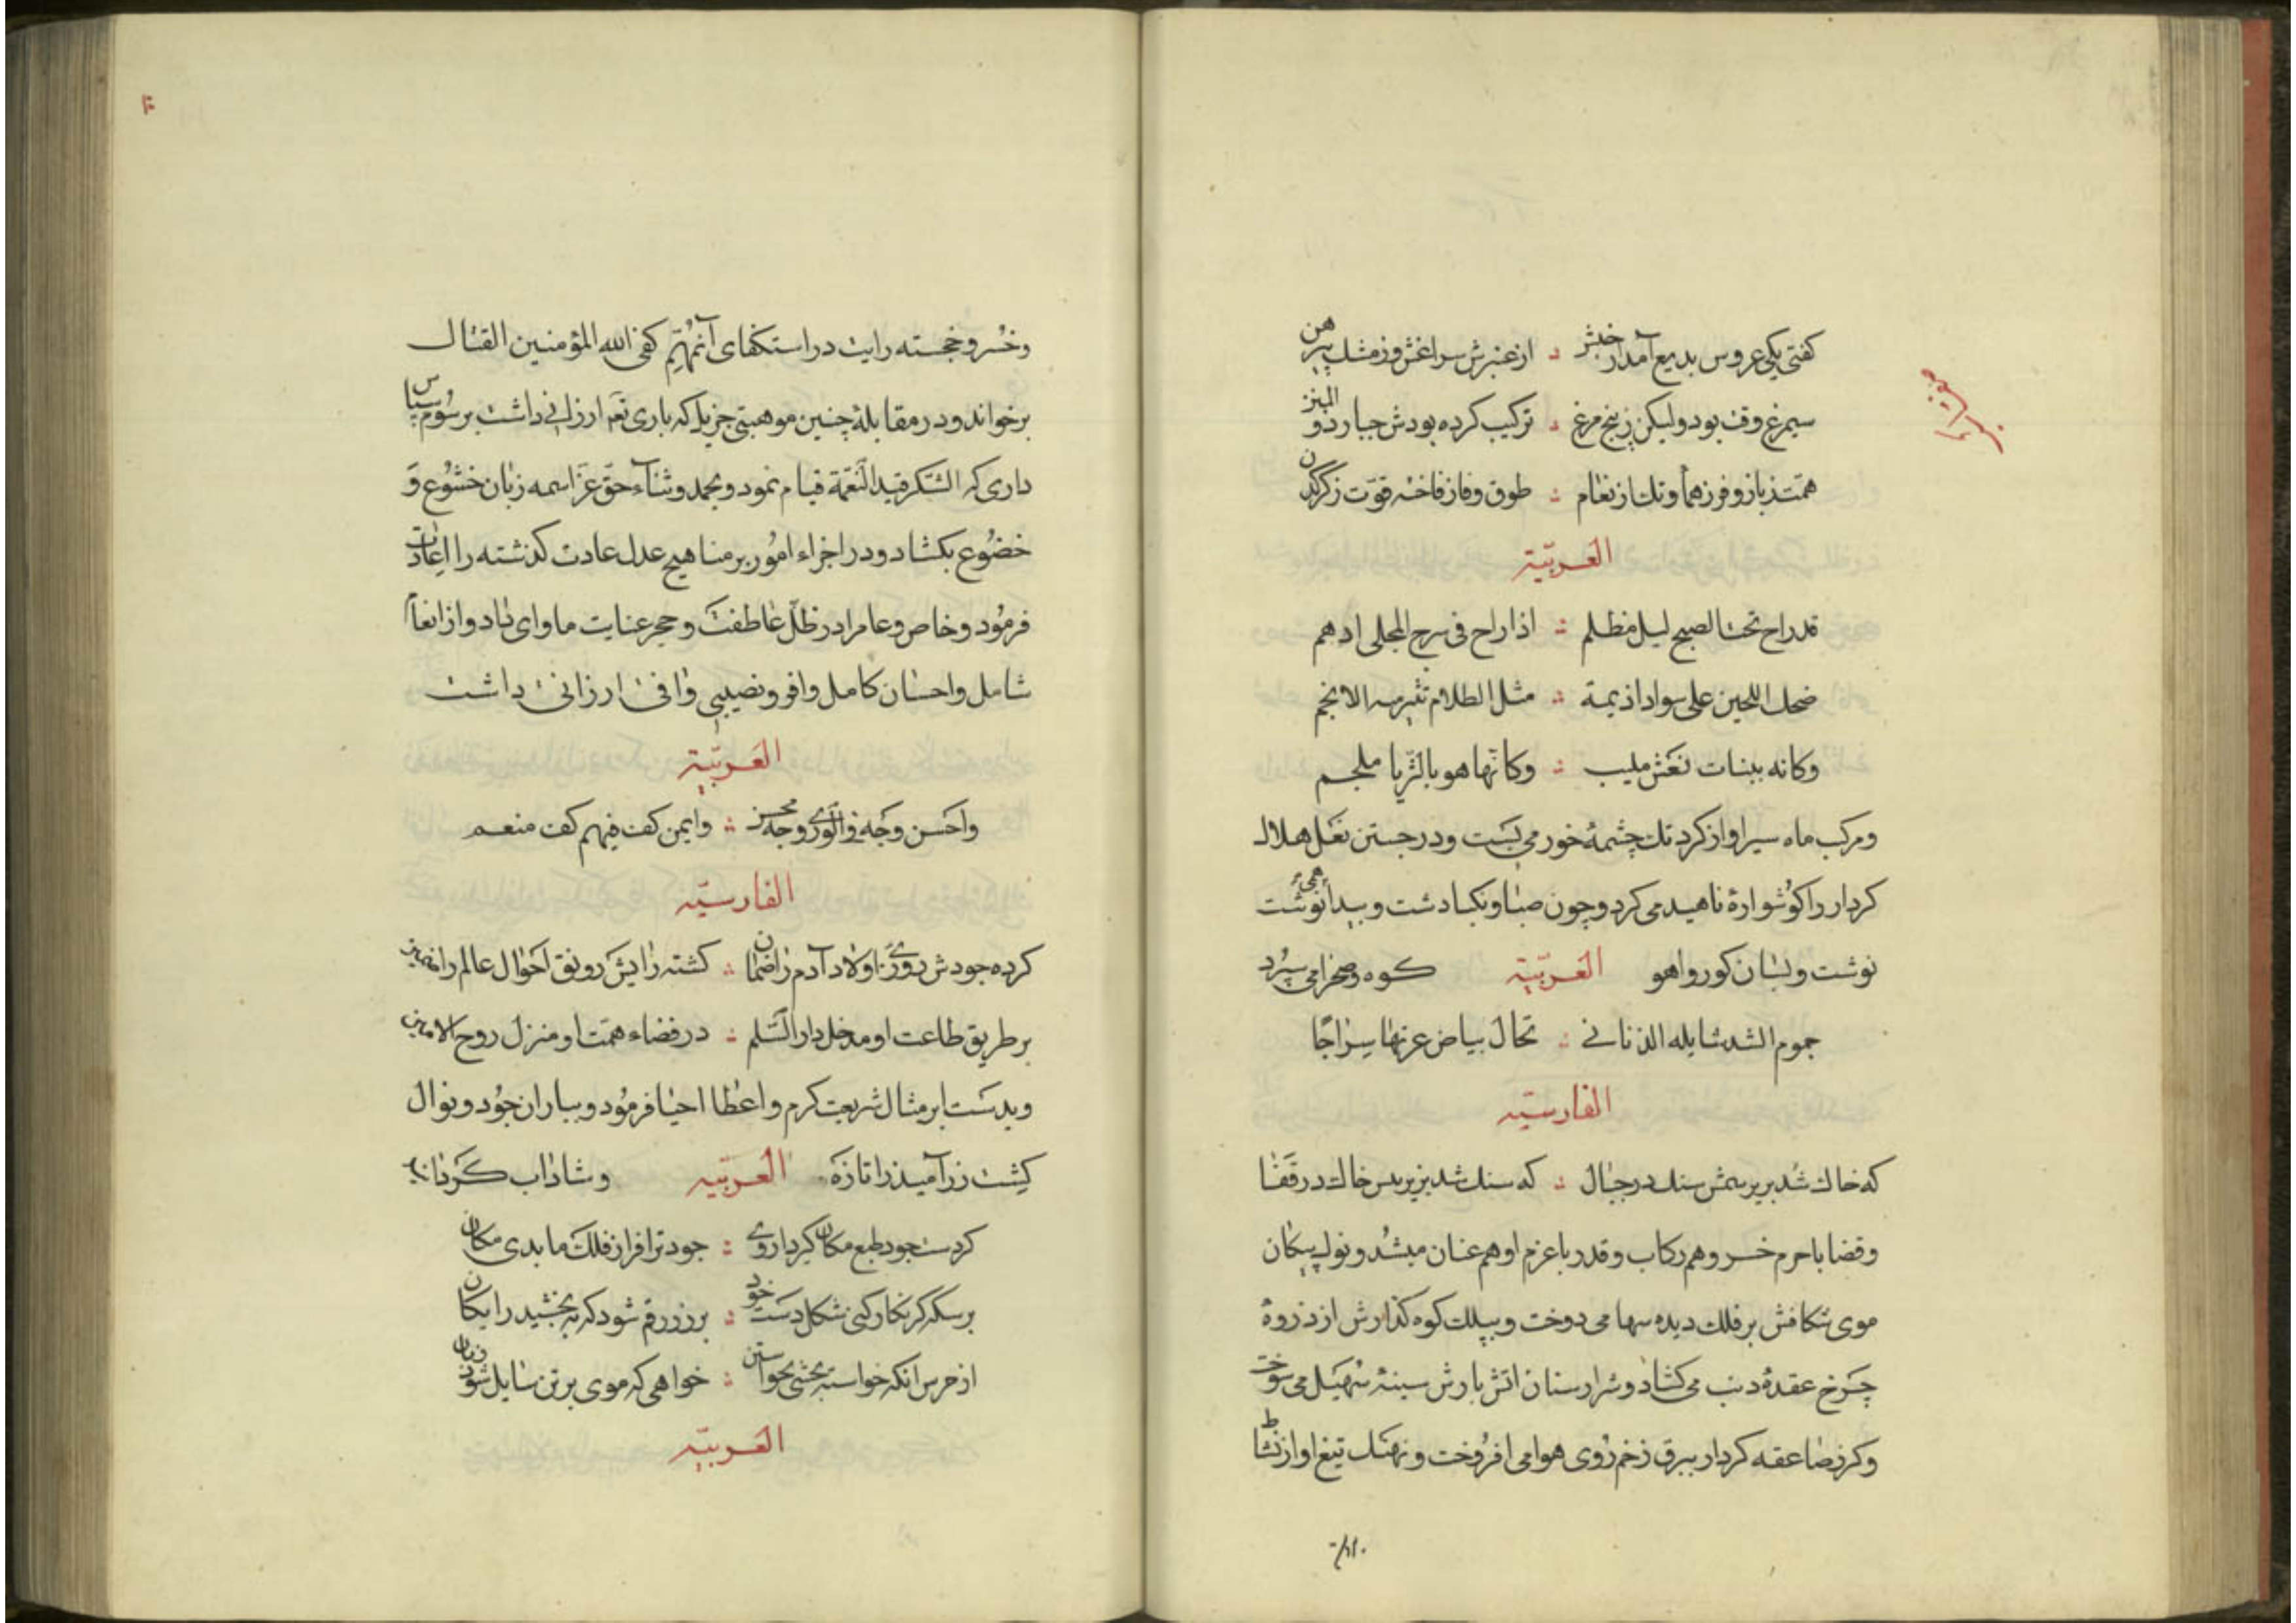 کفتی یکی عروس بدیع آمدار خبش ؞ از عنبرش سراغش وز مشک پیرهن
سیمرغ وقت بود ولیکن ز پنج مرغ ؞ ترکیب کرده بودش جبار ذو المنن
همت ز باز و فر ز هما و تک از نعام ؞ طوق وفا ز فاخته قوت ز کرکدن
العربیّة
قد راح تحت الصبح لیل مظلم ؞ اذا راح فی سرج المحلی ادهم
ضحك اللجین علی سواد ادیمه ؞ مثل الظلام تنیر به الانجم
وکانه ببنات نعش ملبب ؞ وکانّها هو بالثریا ملجم
ومرکب ماه سیر او از کرد تك چشمهٔ خور می بست و در جستن نعل هلال
کردار را کوشوارهٔ ناهید می کرد و چون صبا و نکبا دشت و بیدا نوشت همی
نوشت و لبسان کور و اهو العربیّة کوه و صحرا می سپرد
جموم الشد شایله الذنابی ؞ تخال بیاض غرتها سراجًا
الفارسیّه
که خاك شد بزیر سمش سنك در جبال ؞ که سنك شد بزیر پس خاك در قفا
وقضا با حرم خسرو هم رکاب و قدر با عزم او هم عنان میشد و نوك پیکان
موی شکافش بر فلك دیده سها می دوخت و بیلك کوه کذارش از ذروهٔ
چرخ عقدهٔ ذنب می کشاد و شرار سنان اتش بارش سینهٔ سهیل می سوخت
وکرز صاعقه کردار ببرق زخم روی هوا می افروخت و نهنك تیغ او از نشاط
وخسرو خجسته رایت در استکفای آنمهم کفی الله المؤمنین القتال
برخواند و در مقابلهٔ چنین موهبتی جزیل که باری تعم ارزانی داشت برسوم سپاس
داری که الشکر قید النّعمة قیام نمود و بحمد و ثناء حقّ عزّ اسمه زبان خشوع و
خضوع بکشاد و در اجراء امور بر مناهیج عدل عادت کذشته را اعادت
فرمود و خاص و عام را در ظلّ عاطفت و حجر عنایت ماوای داد و از انعام
شامل و احسان کامل وافر و نصیبی وافی ارزانی داشت
العربیّة
واحسن وجه فی الوری وجه محسن ؞ وایمن کف فیهم کف منعم
الفارسیّه
کرده جودش روزی اولاد آدم را ضمان ؞ کشته رایش رونق احوال عالم را ضمین
بر طریق طاعت او مدخل دار السّلم ؞ در فضاء همّت او منزل روح الامین
وبدست ابر مثال شریعت کرم و اعطا احیا فرمود و بباران جود و نوال
کشت زر آمیذ را تازه العربیّه و شاداب کردانید
کردست جود طبع مکان کردار روی ؞ جود ترا فراز فلك ما بدی مکان
بر سکه کر نکار کنی شکل دست خود ؞ بر زر رقم شود که ببخشید رایکان
از حرس انکه خواسته بخشی بخواستن ؞ خواهی که موی بر تن سایل شود زبان
العربیّه